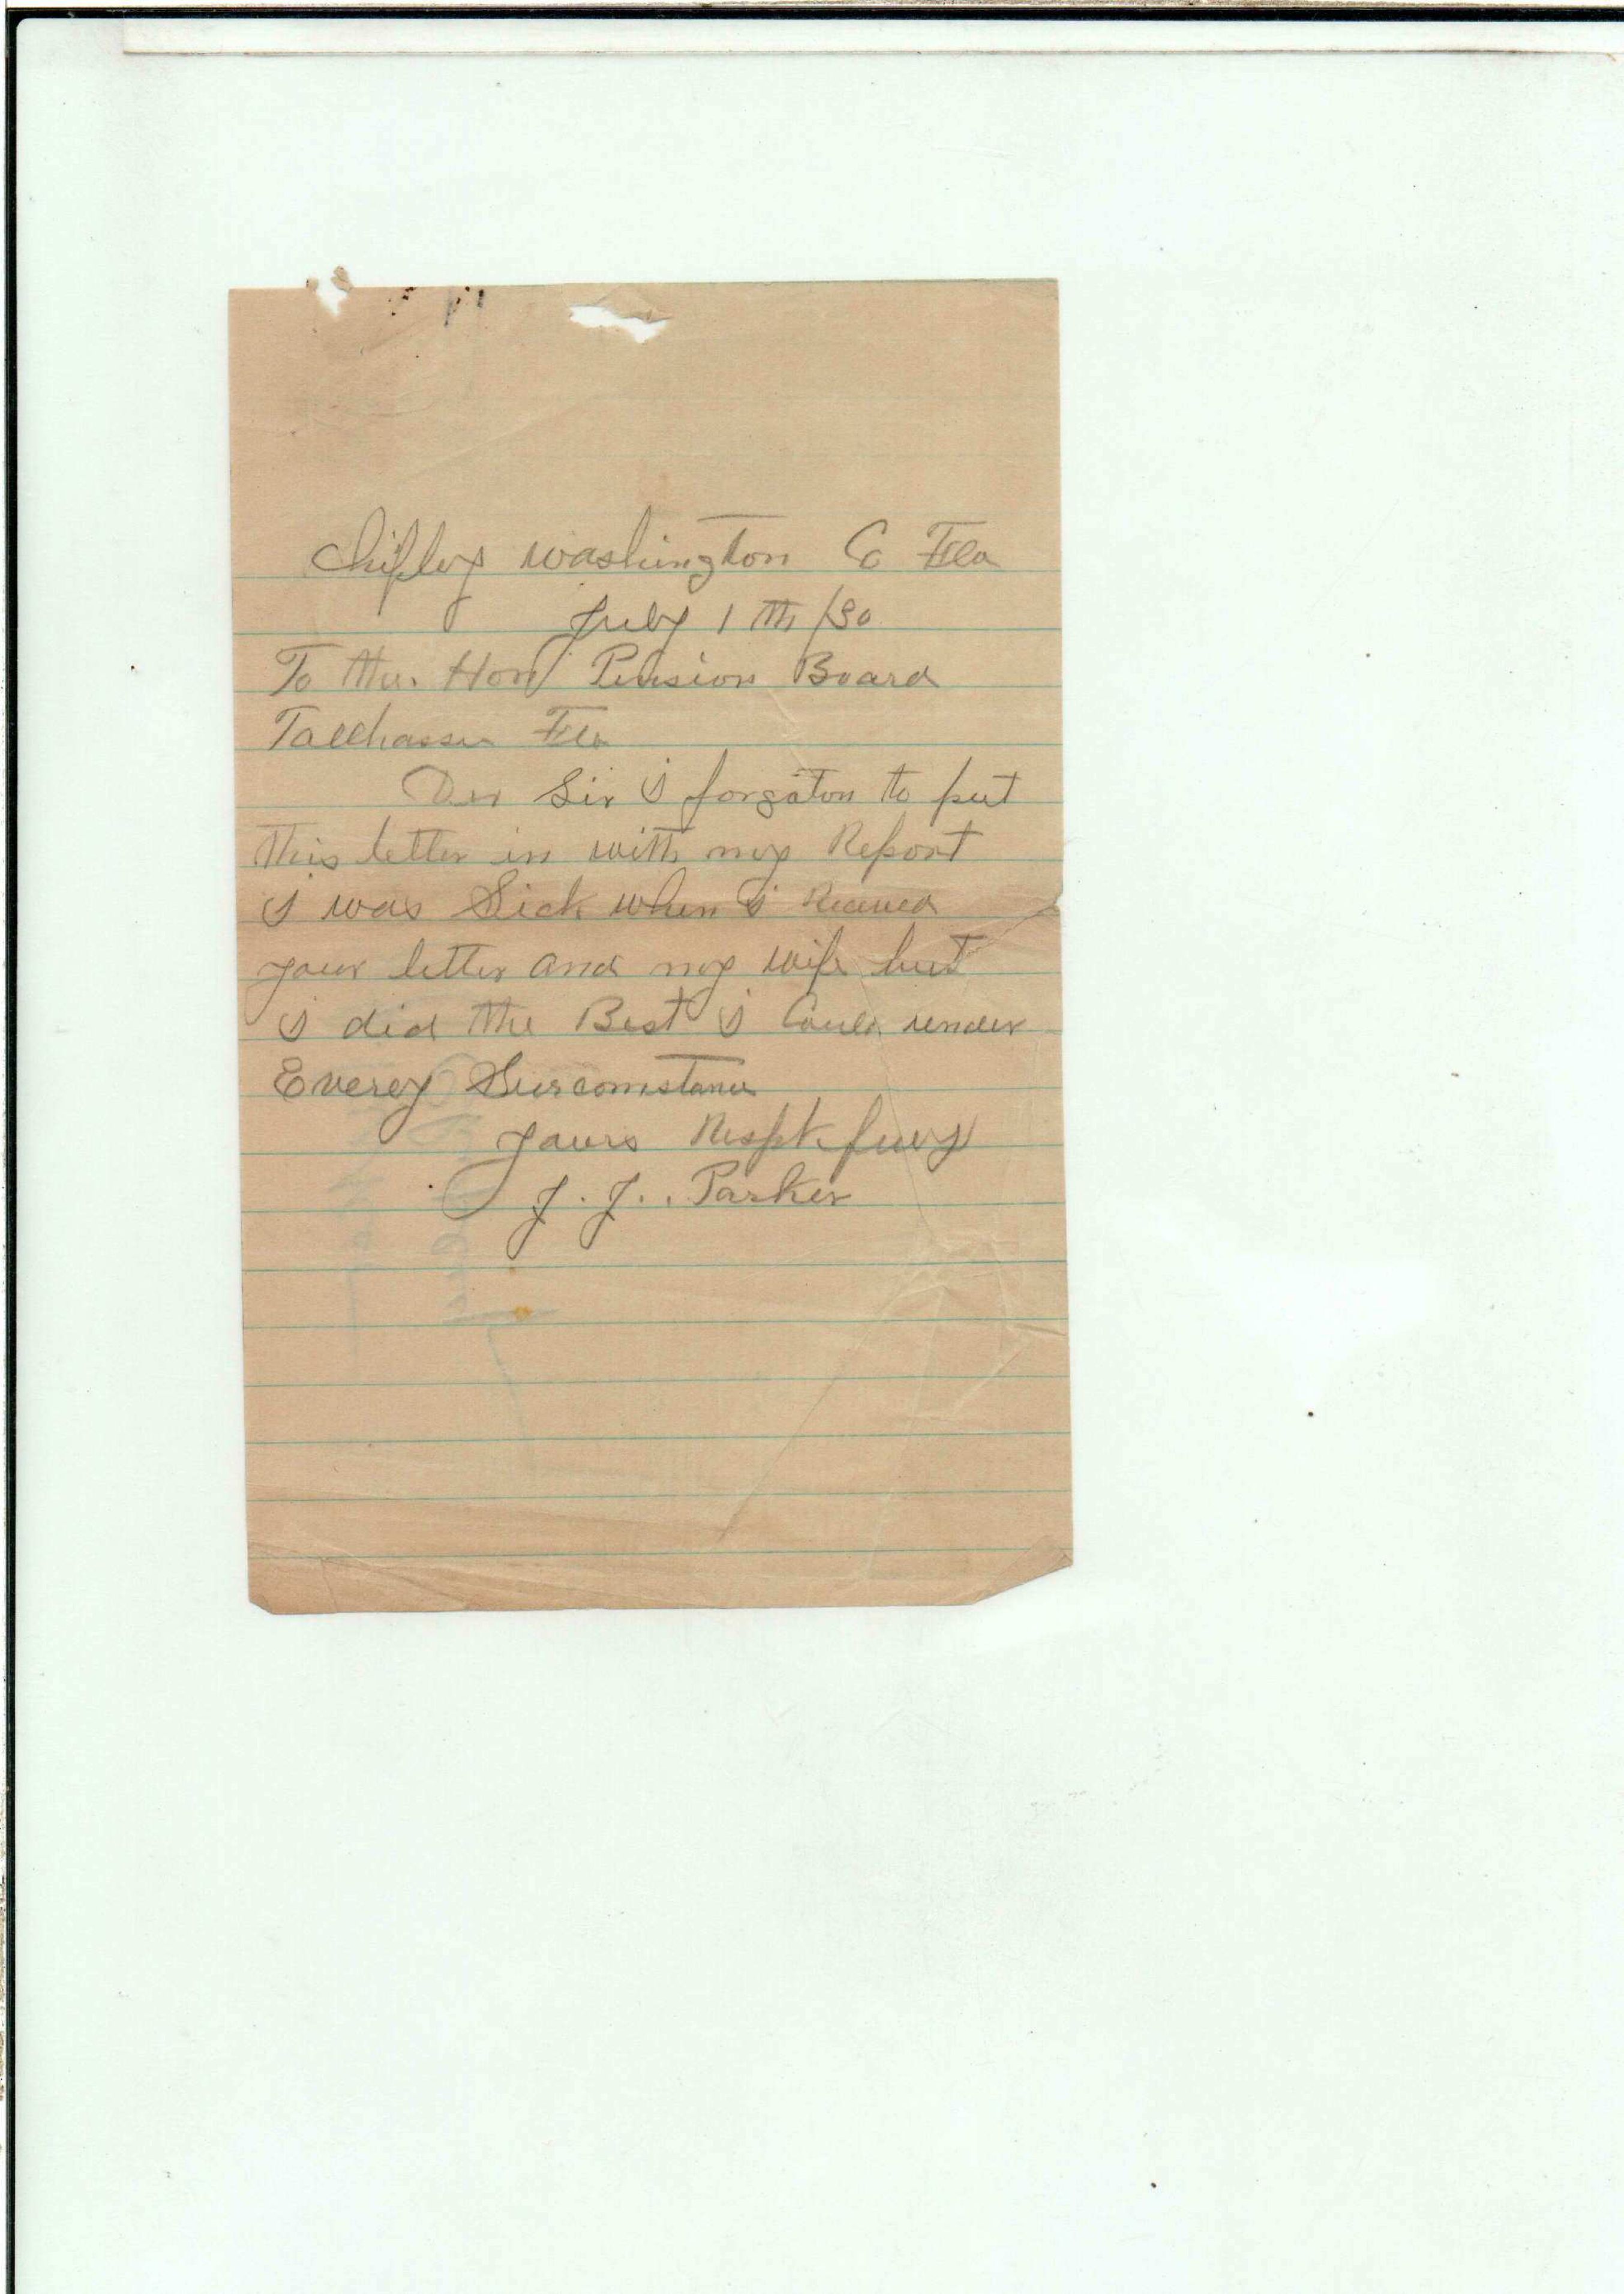 Chipley Washington Co Fla
July 1th /30
To the. Hon Pension Board
Tallhassee Fla
Der Sir i forgaton to put
this letter in with my Report
i was Sick when i Receved
your letter and my wife but
i did the Best i Could under
Everey Surcomstance
yours Respktfuly
J. J.. Parker